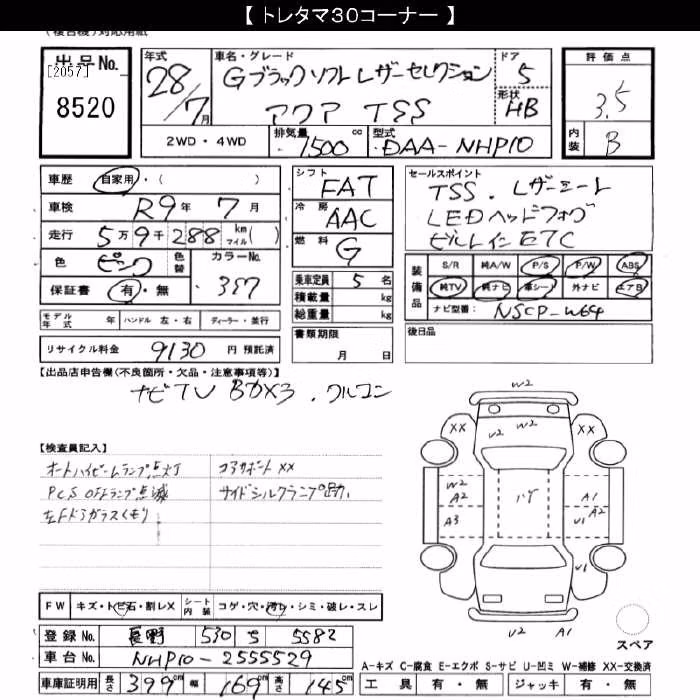 【 トレタマ30コーナー 】
(複合機)対応用紙
出品No. [2057] 8520
年式 28/7月
車名・グレード Gブラックソフトレザーセレクション アクア TSS
ドア 5
形状 HB
評価点 3.5
内装 B
2WD・4WD
排気量 1500 cc
型式 DAA-NHP10
車歴 自家用・( )
車検 R9年 7月
走行 5万9千288 km マイル( )
色 ピンク 色替 カラーNo. 3S7
保証書 有・無
シフト FAT
冷房 AAC
燃料 G
乗車定員 5 名
積載量 kg
総重量 kg
セールスポイント
TSS. レザーシート
LEDヘッドフォグ
ビルトインETC
装備品 S/R 純A/W P/S P/W ABS
純TV 純ナビ 革シート 外ナビ エアB
ナビ型番: NSCP-W64
モデル年式 年 ハンドル 左・右 ディーラー・並行
書類期限 月 日
後日品
リサイクル料金 9130 円 預託済
【出品店申告欄(不良箇所・欠品・注意事項等)】
ナビTV BOX3 . クルコン
【検査員記入】
オートハイビームランプ点灯 コアサポート XX
PCS OFFランプ点滅 サイドシルクランプ跡
左Fドアガラスくもり
W2
XX V2 W2 XX
V2
W2 A2 ハゲ A1 A2
A3 U1 A2
U1
U2 A1
スペア
FW キズ・トビ石・割レX シート内装 コゲ・穴・汚レ・シミ・破レ・スレ
登録No. 長野 530 さ 5582
車台No. NHP10-2555529
車庫証明用 長さ 399cm 幅 169cm 高さ 145cm
A-キズ C-腐食 E-エクボ S-サビ U-凹ミ W-補修 XX-交換済
工具 有・無 ジャッキ 有・無